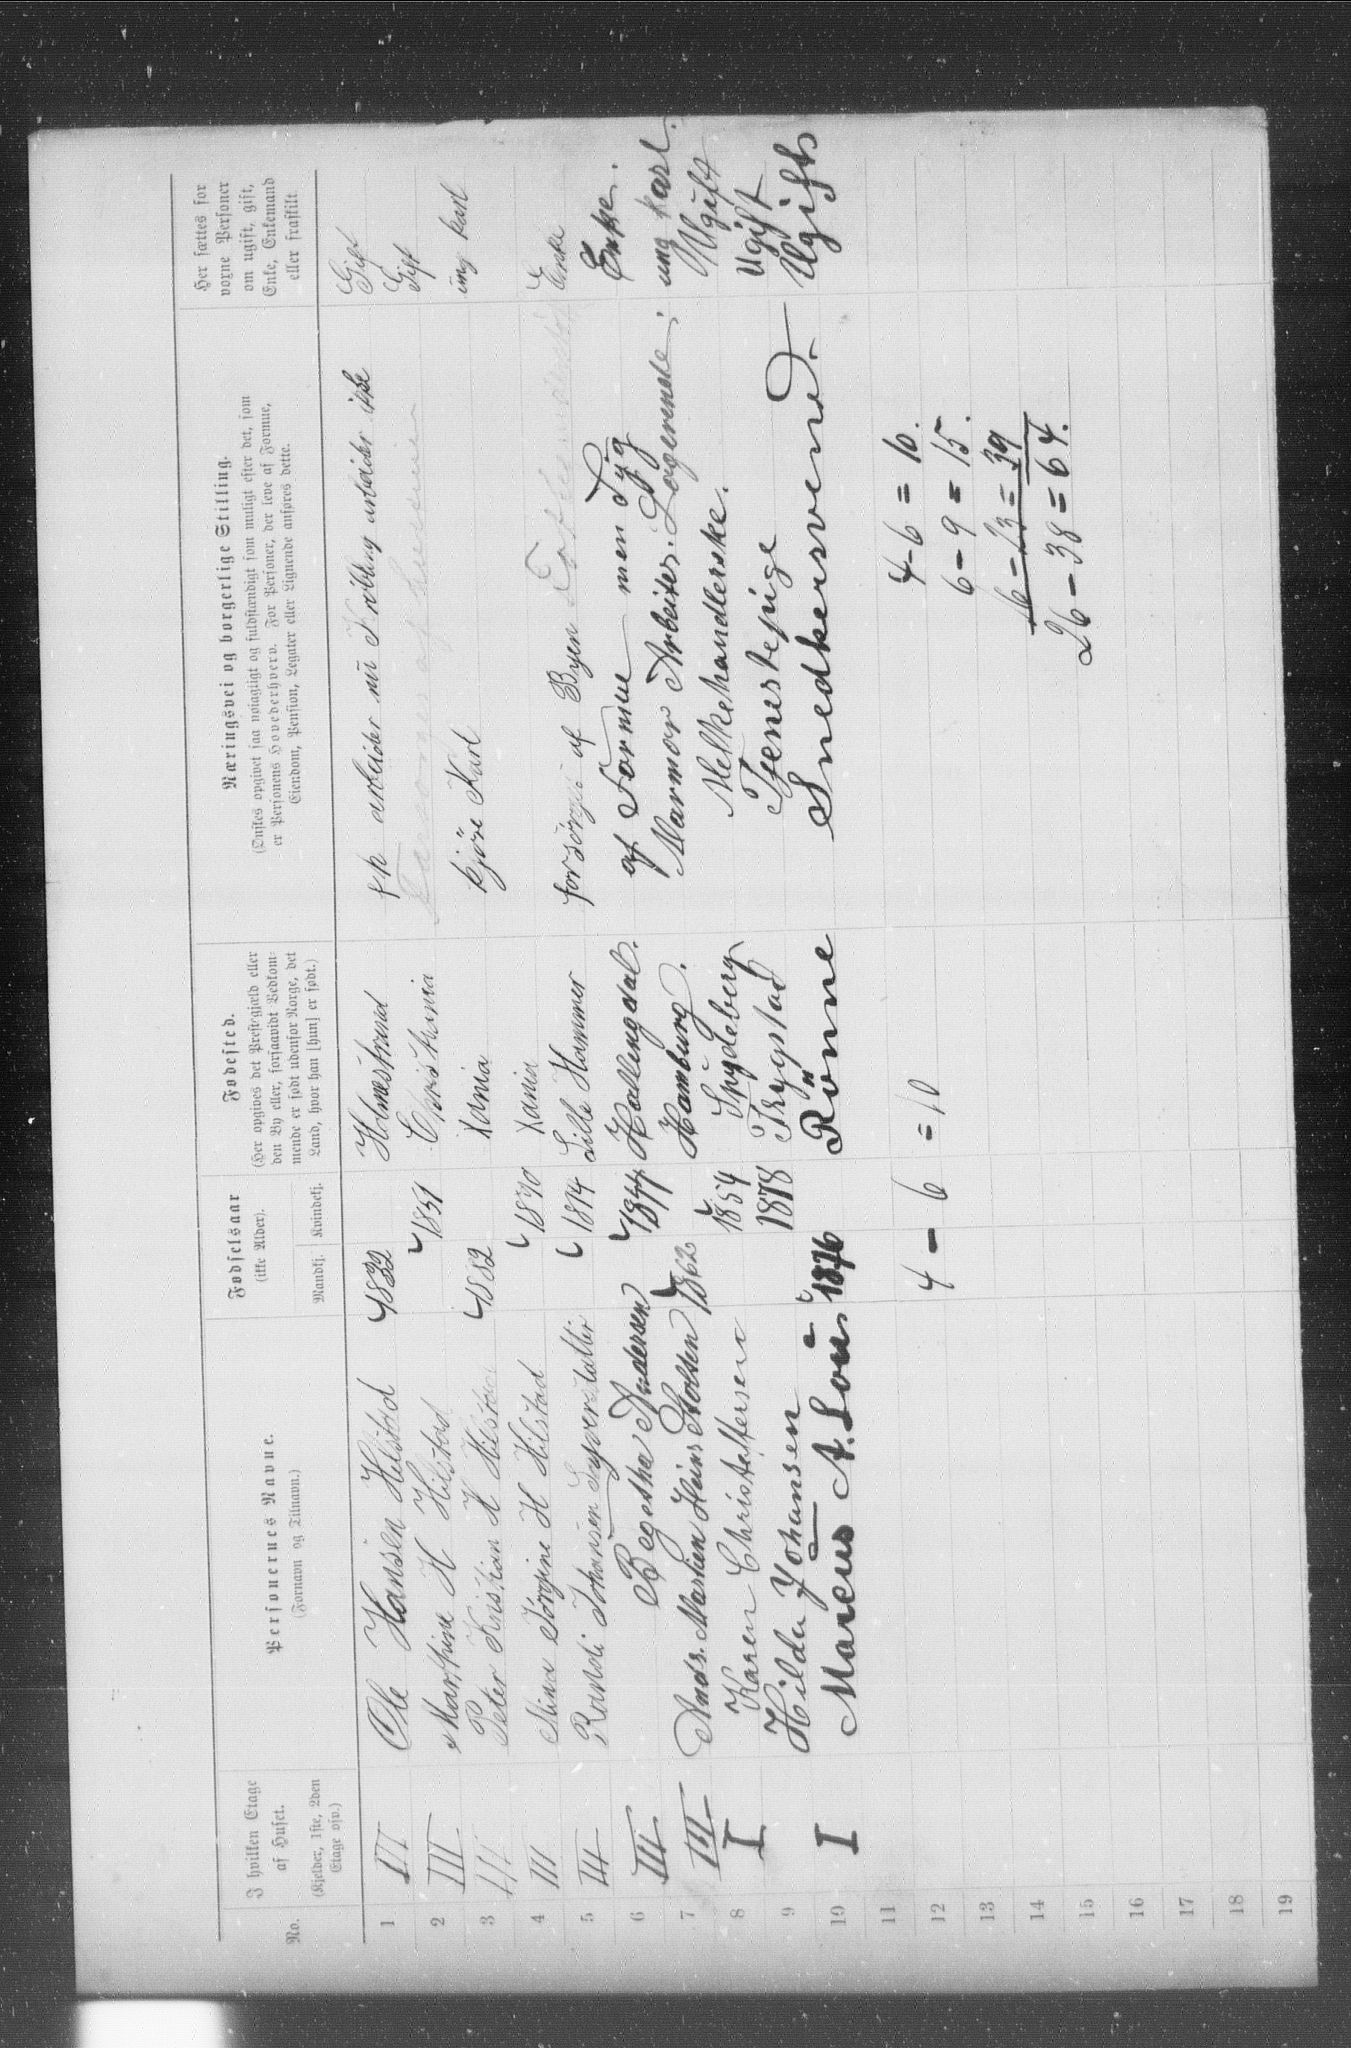 No.
I hvilken Etage af Huset.
(Kjelder, 1ste, 2den Etage osv.)
Personernes Navne.
(Fornavn og Tilnavn.)
Fødselsaar
(ikke Alder).
Mandkj. Kvindekj.
Fødested.
(Her opgives det Prestegjæld eller
den By eller, forsaavidt Vedkom-
mende er født udenfor Norge, det
Land, hvor han [hun] er født.)
Næringsvei og borgerlige Stilling.
(Ønskes opgivet saa nøiagtigt og fuldstændigt som muligt efter det, som
er Personens Hovederhverv. For Personer, der leve af Formue,
Eiendom, Pension, Legater eller Lignende anføres dette.
Her sættes for
voxne Personer
om ugift, gift,
Enke, Enkemand
eller fraskilt.
1 III Ole Hansen Hilstad 1832 Holmestrand arbeider nu Krøbling arbeider ikke Gift
2 III Marthine H Hilstad 1851 Christiania Gift
3 III Peter Kristian H Hilstad 1882 Kania Kjöre Karl ung Karl
4 III Mina Jörgine H Hilstad 1870 Kania
5 III Randi Johansen 1814 Lille Hammer forsörget af Byen Enke
6 III Begethe Andersen 1844 Hallingdal. af Formue men Syg Enke.
7 III Andr. Martien Heins Stolsen 1862 Hamburg. Marmor Arbeiter. Logerende; ung karl.
8 I Karen Christoffersen 1854 Spydeberg Melkehandlerske. Ugift
9 Hilda Johansen 1878 Trygstad Tjenestepige Ugift
10 I Marcus A. Lou 1876 Rönne Snedkersvend. Ugift
11
12 4 - 6 = 10 4 - 6 = 10.
13 6 - 9 = 15.
14 16 - 23 = 39
15 26 - 38 = 64.
16
17
18
19